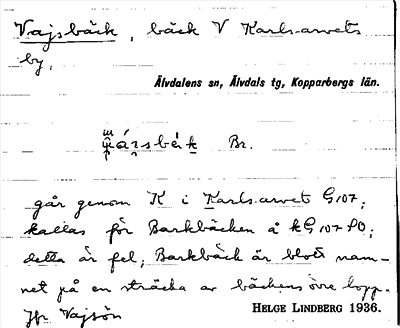 Vajsbäck, bäck V Karlsarvets
by.
Älvdalens sn, Älvdals tg, Kopparbergs län.
Br.
går genom K i Karlsarvet G107;
kallas för Barkbäcken å kG 107 SO;
detta är fel; Barkbäck är blott nam-
net på en sträcka av bäckens övre lopp.
Jfr Vajsön
HELGE LINDBERG 1936.